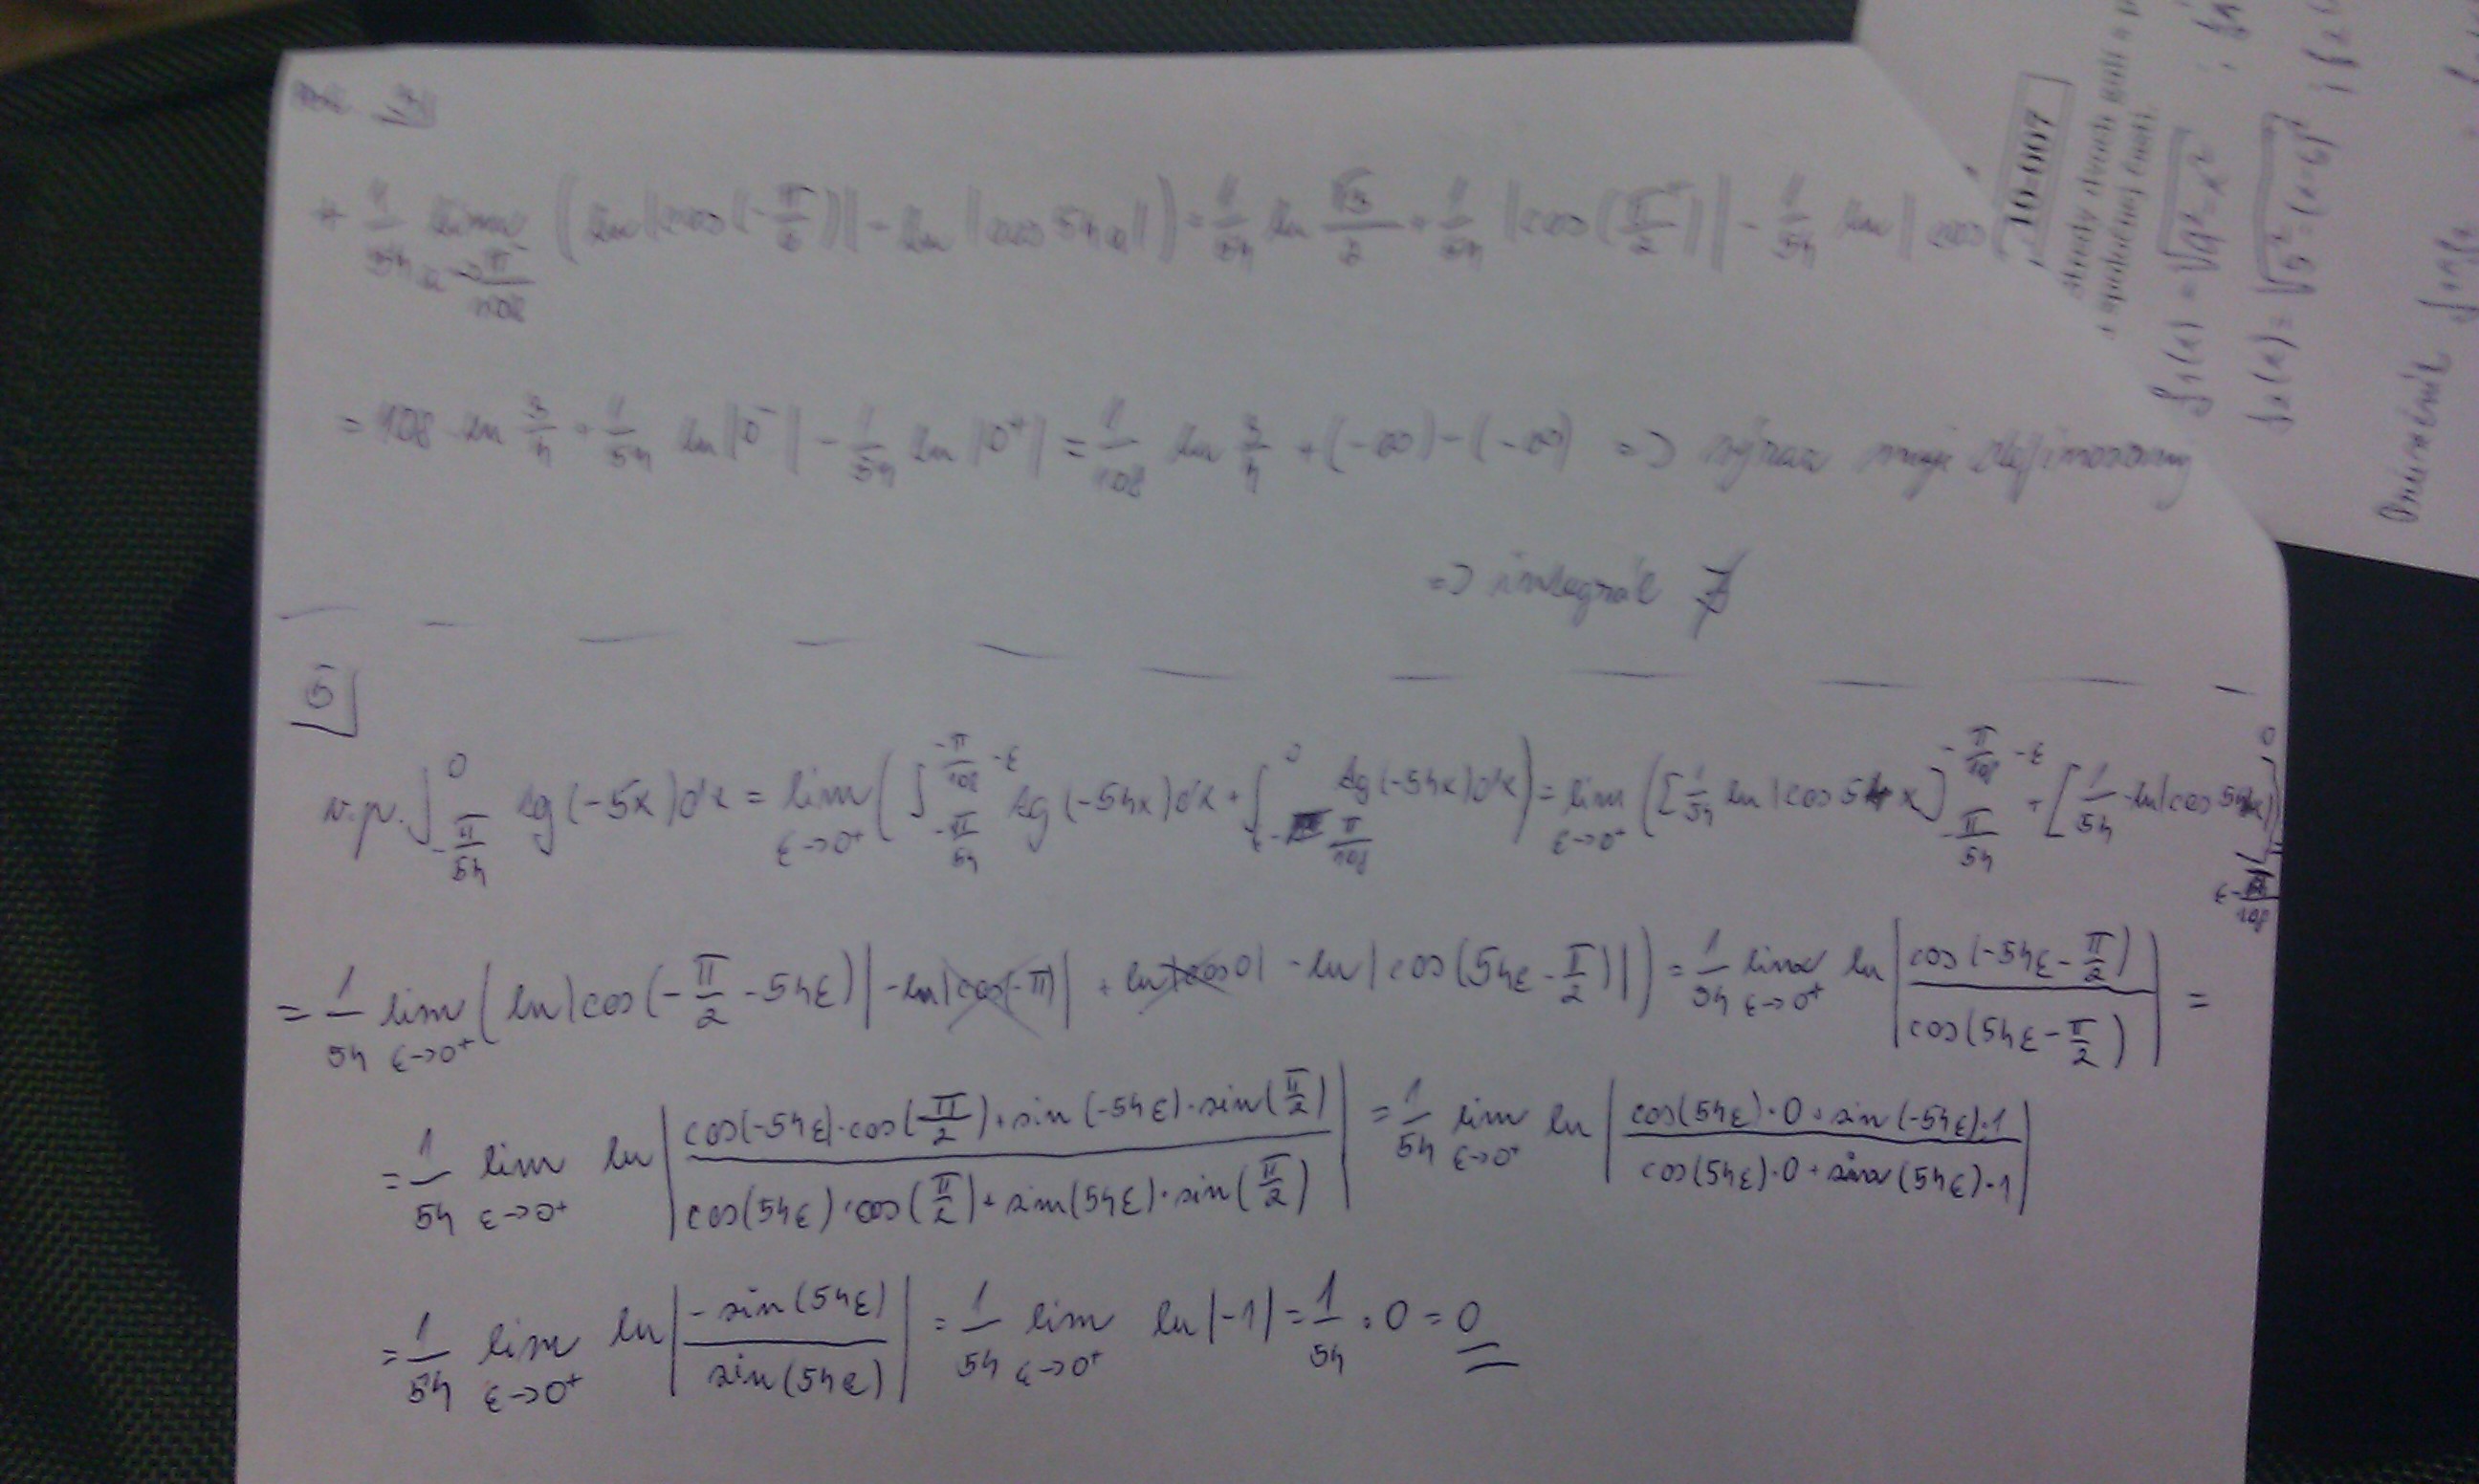 + 1/54 lim a→-π/108 (ln|cos(-π/6)| - ln|cos 54a|) = 1/54 ln √3/2 + 1/54 |cos(π/2⁻)| - 1/54 ln|cos
= 108 ln 3/4 + 1/54 ln|0⁻| - 1/54 ln|0⁺| = 1/108 ln 3/4 + (-∞) - (-∞) => výraz
=> integrál ∄
5
v.p. ∫_{-π/54}^{0} tg(-5x)dx = lim ε→0⁺ (∫_{-π/54}^{-π/108 -ε} tg(-54x)dx + ∫_{-π/108}^{0} tg(-54x)dx) = lim ε→0⁺ ([1/54 ln|cos 54x]_{-π/54}^{-π/108 -ε} + [1/54 ln|cos 54x|]^{0}
= 1/54 lim ε→0⁺ (ln|cos(-π/2 -54ε)| - ln|cos(-π)| + ln|cos0| - ln|cos(54ε - π/2)|) = 1/54 lim ε→0⁺ ln|cos(-54ε - π/2) / cos(54ε - π/2)| =
= 1/54 lim ε→0⁺ ln|cos(-54ε)·cos(π/2) + sin(-54ε)·sin(π/2) / cos(54ε)·cos(π/2) + sin(54ε)·sin(π/2)| = 1/54 lim ε→0⁺ ln|cos(54ε)·0 + sin(-54ε)·1 / cos(54ε)·0 + sin(54ε)·1|
= 1/54 lim ε→0⁺ ln|-sin(54ε) / sin(54ε)| = 1/54 lim ε→0⁺ ln|-1| = 1/54 · 0 = 0
16-007
f₁(x) = √a²-x²
f₂(x) = √5²-(x-6)²